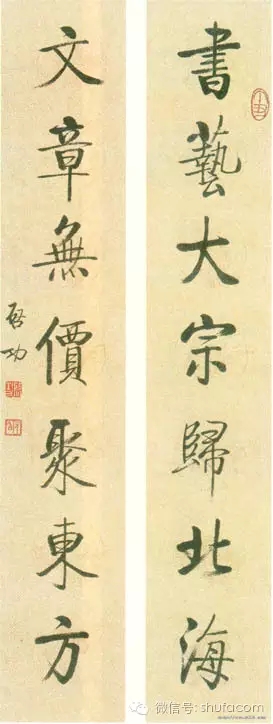 書藝大宗歸北海
文章無價聚東方
启功
微信号: shufacom